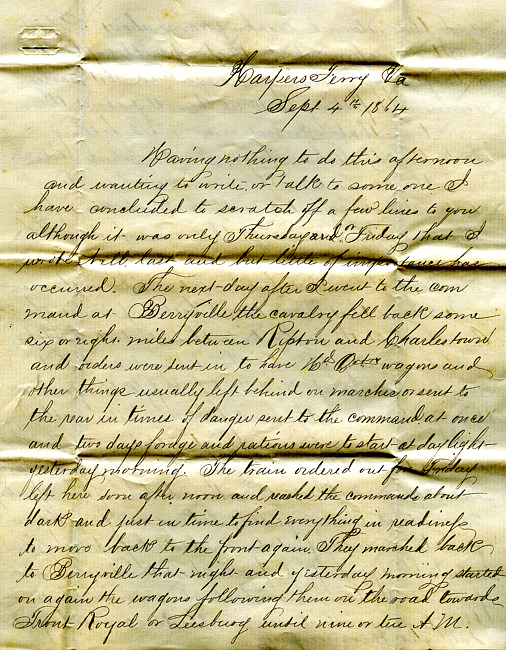 Harpers Ferry Va
Sept 4th 1864
Having nothing to do this afternoon
and wanting to write, or talk to some one I
have concluded to scratch off a few lines to you
although it was only Thursday and Friday that I
wrote last and but little of importance has
occurred. The next day after I went to the com
mand at Berryville the cavalry fell back some
six or eight miles between Ripton and Charlestown
and orders were sent in to have Hd Qrtrs wagons and
other things usually left behind on marches or sent to
the rear in times of danger sent to the command at once
and two days forage and rations were to start at daylight
yesterday morning. The train ordered out for Friday
left here soon after noon and reached the commands about
dark and just in time to find everything in readiness
to move back to the front again. They marched back
to Berryville that night and yesterday morning started
on again the wagons following them on the road towards
Front Royal or Leesburg until nine or ten A.M.